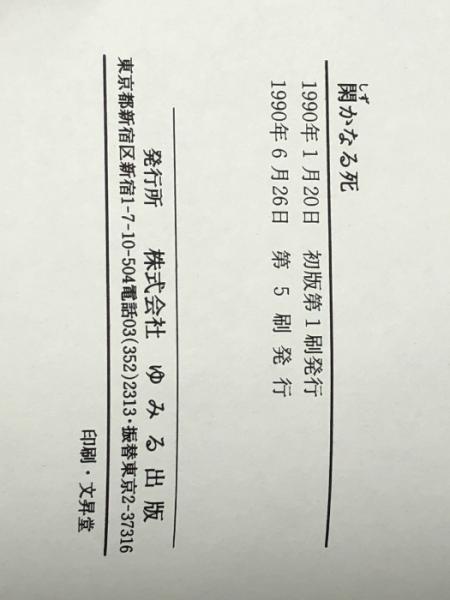 閑かなる死
しず
1990年1月20日 初版第1刷発行
1990年6月26日 第5刷発行
発行所 株式会社 ゆみる出版
東京都新宿区新宿1-7-10-504電話03(352)2313・振替東京2-37316
印刷・文昇堂